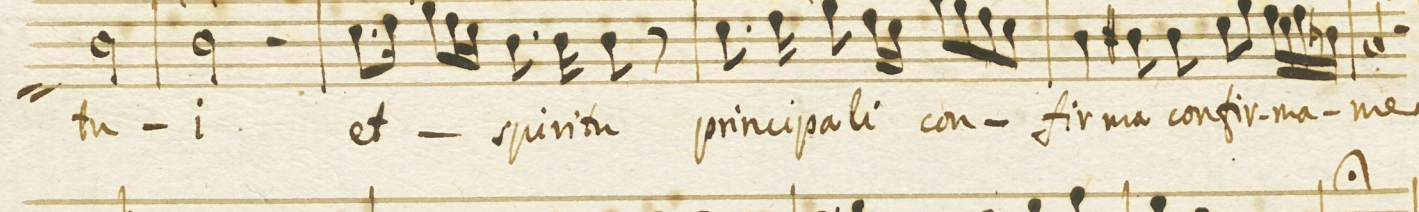 tu - i et - spiritu principali con - firma confir - ma - me